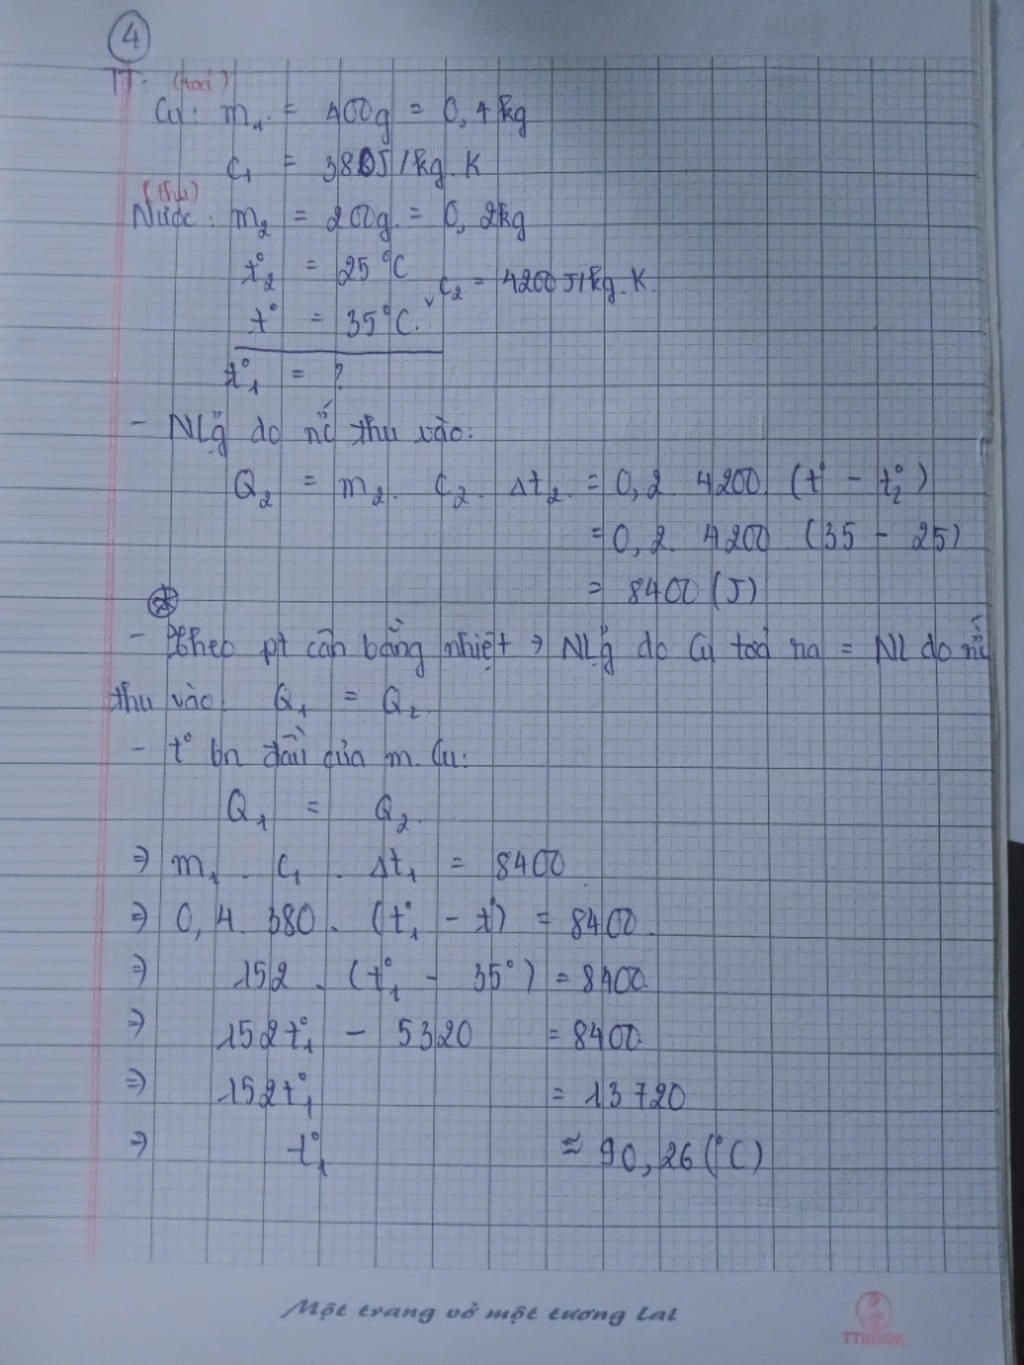 4
TT: (toả)
Cu: m₁ = 400g = 0,4kg
c₁ = 380J/kg.K
(thu)
Nước: m₂ = 200g = 0,2kg
t°₂ = 25°C
c₂ = 4200J/kg.K
t° = 35°C.
t°₁ = ?
- NLg do nc thu vào:
Q₂ = m₂. c₂. Δt₂ = 0,2 4200 (t° - t°₂)
= 0,2. 4200. (35 - 25)
= 8400 (J)
- Theo pt cân bằng nhiệt → NLg do Cu toả ra = NL do nc
thu vào. Q₁ = Q₂
- t° bn đầu của m Cu:
Q₁ = Q₂.
⇒ m₁ . c₁ . Δt₁ = 8400
⇒ 0,4. 380. (t°₁ - t°) = 8400.
⇒ 152 . (t°₁ - 35°) = 8400
⇒ 152t°₁ - 5320 = 8400
⇒ 152t°₁ = 13720
⇒ t°₁ ≈ 90,26 (°C)
Một trang vở một tương lai
TTBOOK